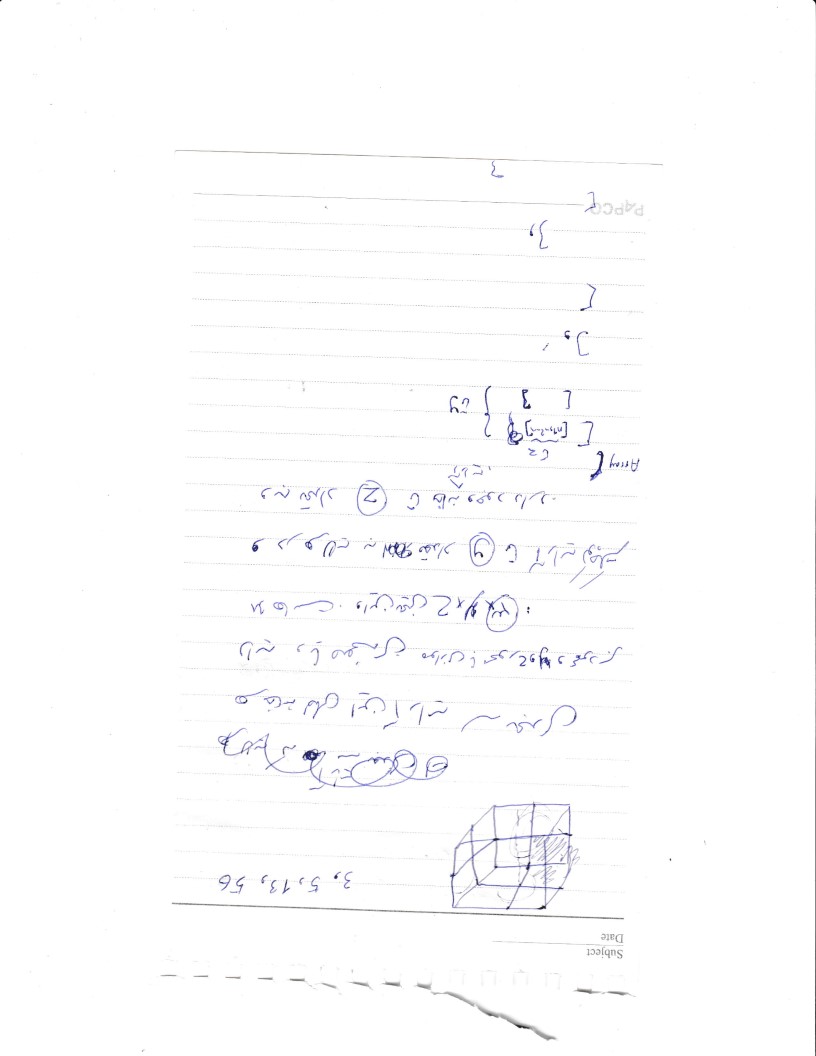 Subject
Date
3, 5, 13, 56
هر لایه که
هر خانه اصلی این آرایه سه بعدی
لایه و یا صفحه‌ی موازی با محور z و y و عمود بر
x هاست. و این یعنی z × y × ۳ :
و در هر لایه به تعداد y تا آرایه کوچکتر
و به تعداد z تا خانه وجود دارد.
آرایه.
Array [
تا z
[ [ ]
[ ] } تا y
],
[
],
[
]
PAPCO